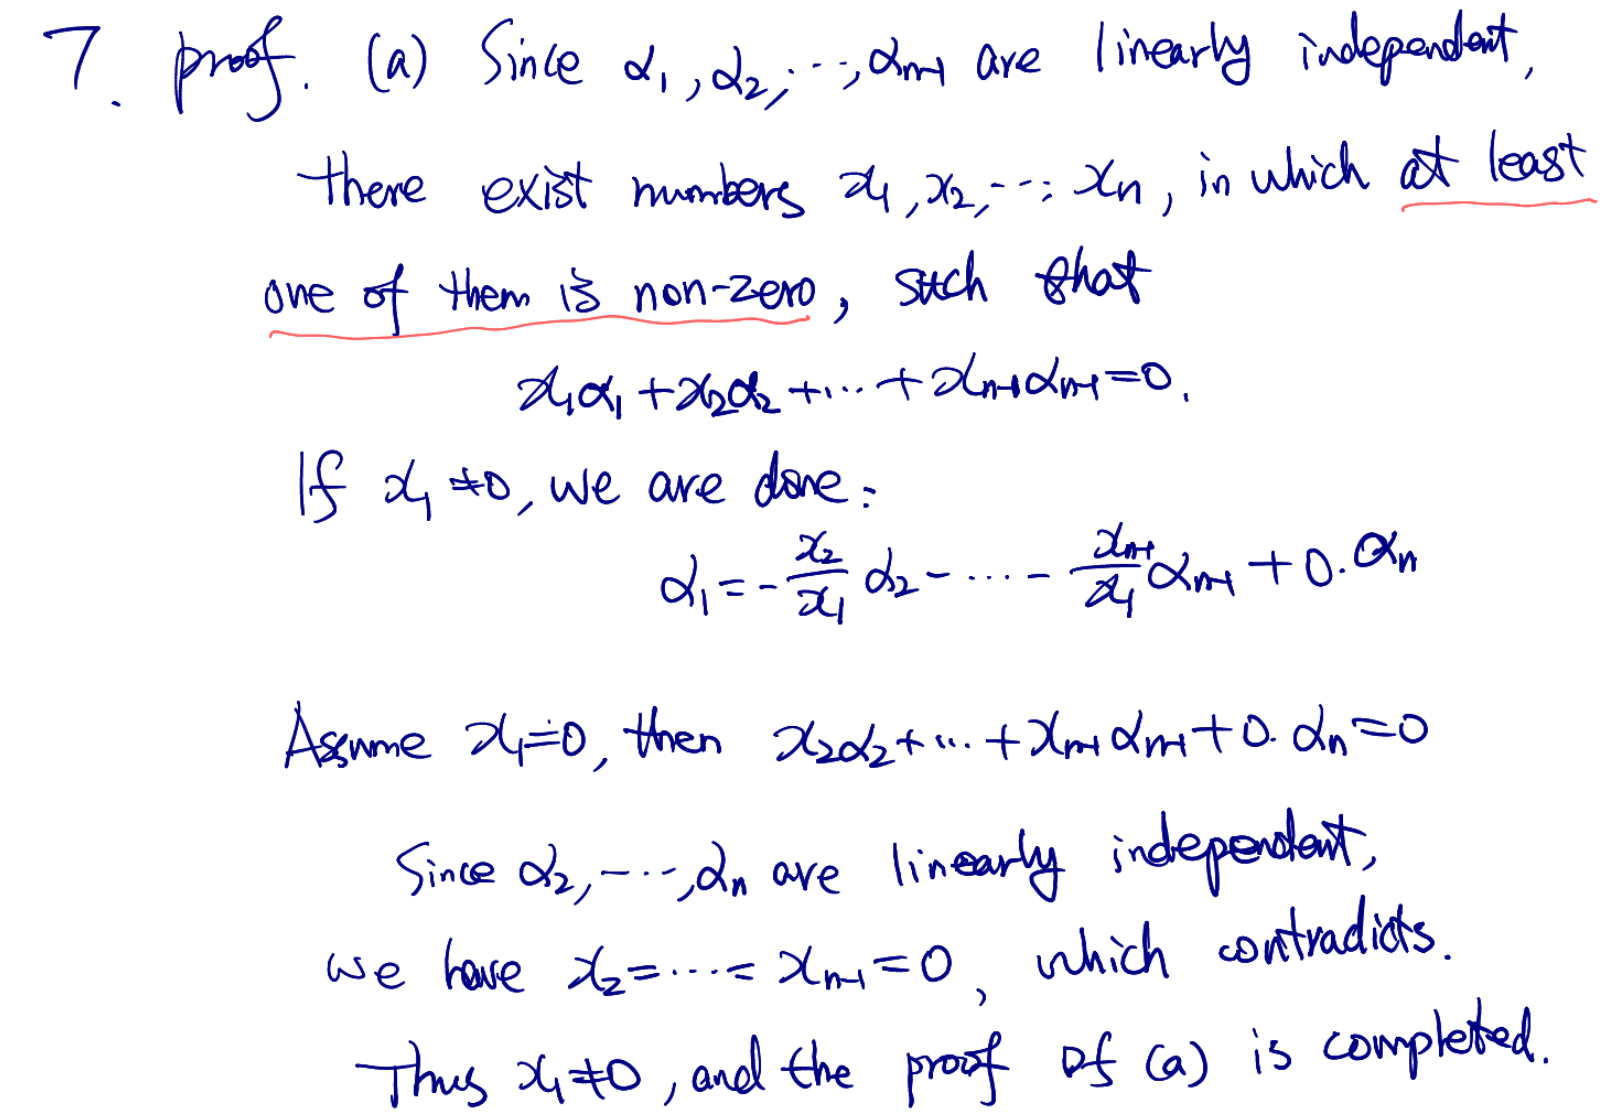 7. proof. (a) Since α₁, α₂, ..., αₙ₋₁ are linearly independent,
there exist numbers x₁, x₂, ..., xₙ, in which at least
one of them is non-zero, such that
x₁α₁ + x₂α₂ + ... + xₙ₋₁αₙ₋₁ = 0.
If x₁ ≠ 0, we are done:
α₁ = -x₂/x₁ α₂ - ... - xₙ₋₁/x₁ αₙ₋₁ + 0·αₙ
Assume x₁ = 0, then x₂α₂ + ... + xₙ₋₁αₙ₋₁ + 0·αₙ = 0
Since α₂, ..., αₙ are linearly independent,
we have x₂ = ... = xₙ₋₁ = 0, which contradicts.
Thus x₁ ≠ 0, and the proof of (a) is completed.